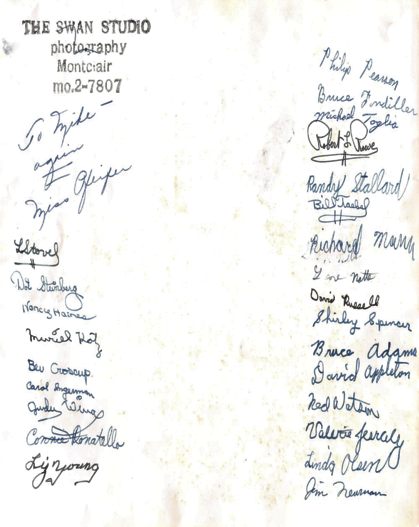 THE SWAN STUDIO
photography
Montclair
mo.2-7807
To Mike -
again
Miss Pfeifer
L Stovel
Dit Steinberg
Nancy Haines
Muriel Katz
Bev Croscup.
Carol Ingerman
Judy
Connie Donatello
Liz Young
Philip Pearson
Bruce Findiller
Michael Toglia
Robert L.
Randy Stallard
Bill
Richard Munn
Netts
David Russell
Shirley Spencer
Bruce Adams
David Appleton
Ned Watson
Valerie
Linda Olsen
Jim Neuman